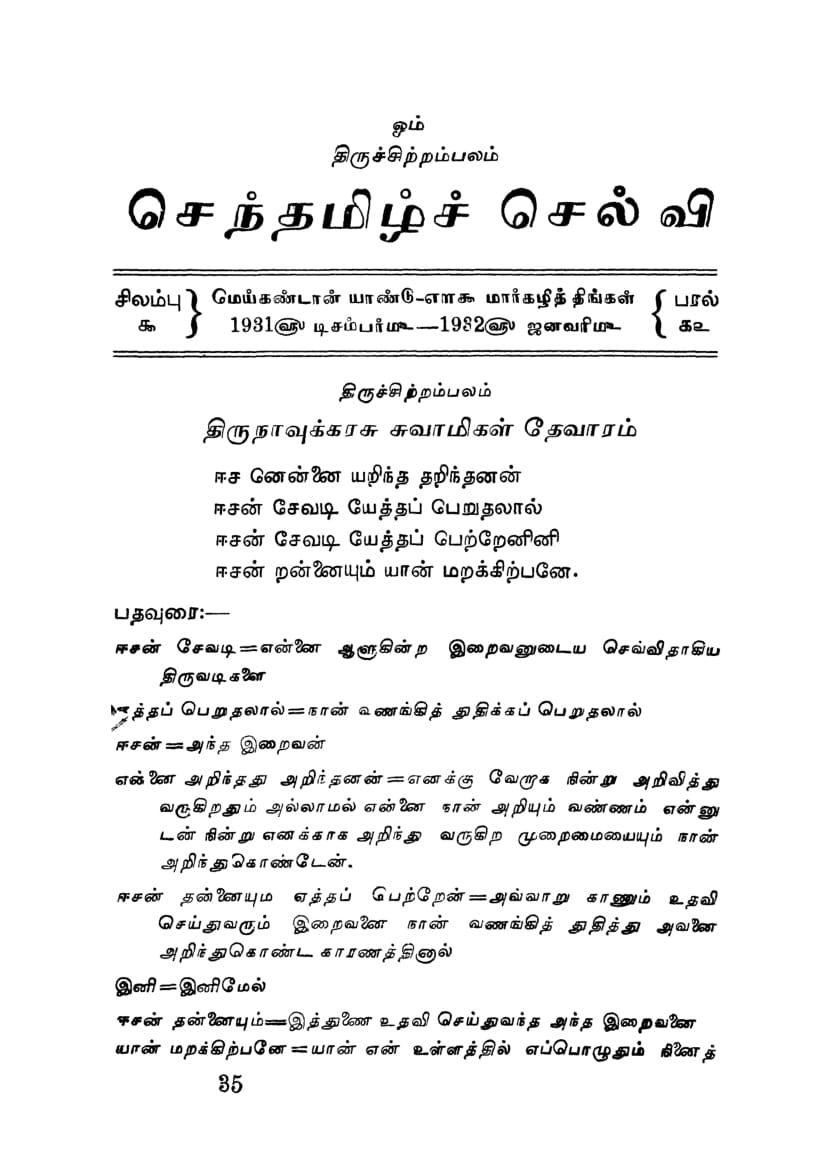 ஓம்
திருச்சிற்றம்பலம்
செந்தமிழ்ச் செல்வி
சிலம்பு } மெய்கண்டான் யாண்டு-எளகூ மார்கழித் திங்கள் { பரல்
௯ 1931௵ டிசம்பர்௴—1932௵ ஜனவரி௴ ௧௨
திருச்சிற்றம்பலம்
திருநாவுக்கரசு சுவாமிகள் தேவாரம்
ஈச னென்னை யறிந்த தறிந்தனன்
ஈசன் சேவடி யேத்தப் பெறுதலால்
ஈசன் சேவடி யேத்தப் பெற்றேனினி
ஈசன் றன்னையும் யான் மறக்கிற்பனே.
பதவுரை:—
ஈசன் சேவடி=என்னை ஆளுகின்ற இறைவனுடைய செவ்விதாகிய
திருவடிகளை
த்தப் பெறுதலால்=நான் வணங்கித் துதிக்கப் பெறுதலால்
ஈசன்=அந்த இறைவன்
என்னை அறிந்தது அறிந்தனன்=எனக்கு வேறாக நின்று அறிவித்து
வருகிறதும் அல்லாமல் என்னை நான் அறியும் வண்ணம் என்னு
டன் நின்று எனக்காக அறிந்து வருகிற முறைமையையும் நான்
அறிந்துகொண்டேன்.
ஈசன் தன்னையும ஏத்தப் பெற்றேன்=அவ்வாறு காணும் உதவி
செய்துவரும் இறைவனை நான் வணங்கித் துதித்து அவனை
அறிந்துகொண்ட காரணத்தினால்
இனி=இனிமேல்
ஈசன் தன்னையும்=இத்துணை உதவி செய்துவந்த அந்த இறைவனை
யான் மறக்கிற்பனே=யான் என் உள்ளத்தில் எப்பொழுதும் நினைத்
35